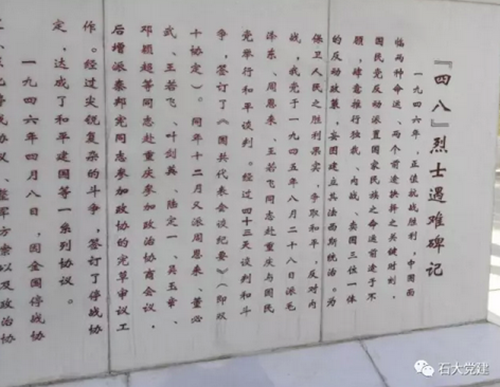 『四八』烈士遇难碑记
一九四六年，正值抗战胜利，中国面
临两种命运、两个前途抉择之关键时刻，
国民党反动派置国家民族之命运前途于不
顾，肆意推行独裁、内战、卖国三位一体
的反动政策，妄图建立其法西斯统治。为
保卫人民之胜利果实，争取和平，反对内
战，我党于一九四五年八月二十八日派毛
泽东、周恩来、王若飞同志赴重庆与国民
党举行和平谈判。经过四十三天谈判和斗
争，签订了《国共代表会谈纪要》（即双
十协定）。同年十二月又派周恩来、董必
武、王若飞、叶剑英、陆定一、吴玉章、
邓颖超等同志赴重庆参加政治协商会议，
后增派秦邦宪同志参加政协的宪草审议工
作。经过尖锐复杂的斗争，签订了停战协
定，达成了和平建国等一系列协议。
一九四六年四月八日，因全国停战协
方案以及政治协
石大党建